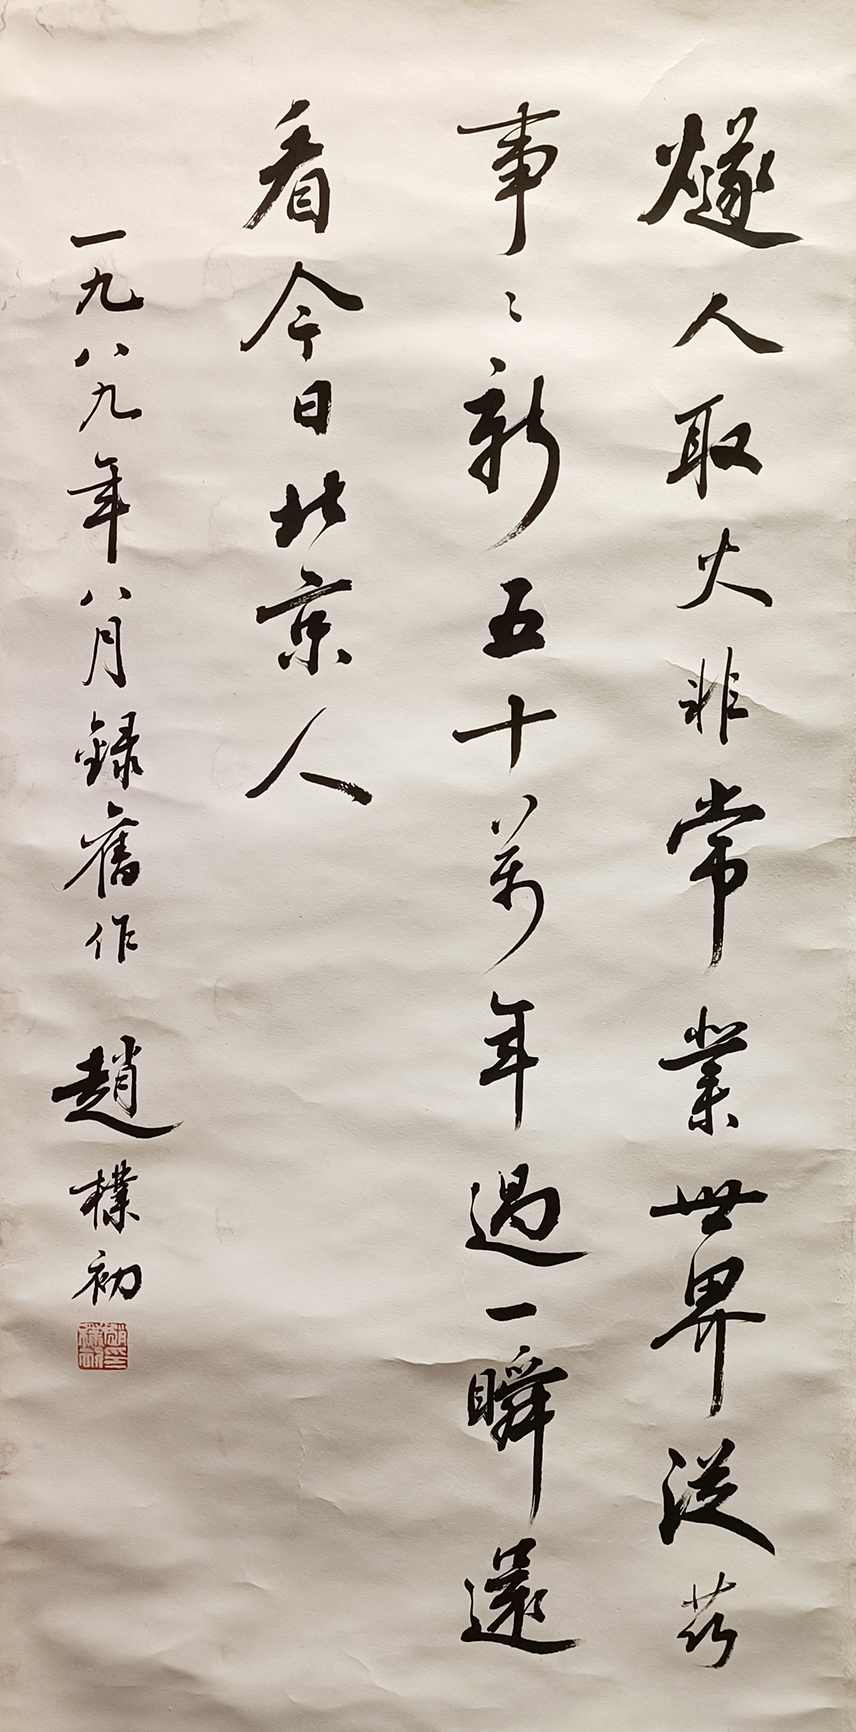 燧人取火非常業世界從茲
事〻新五十萬年過一瞬還
看今日北京人
一九八九年八月録舊作
趙樸初